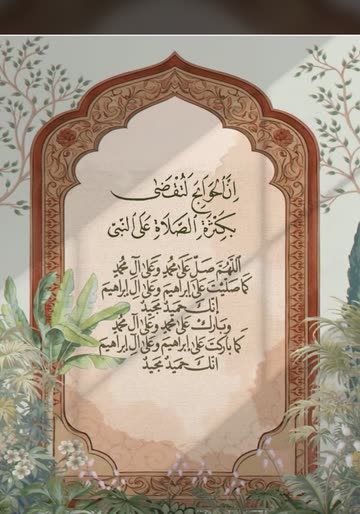 إِنَّ الْحَوَائِجَ لَتُقْضَى
بِكَثْرَةِ الصَّلَاةِ عَلَى النَّبِي
اللَّهُمَّ صَلِّ عَلَى مُحَمَّدٍ وَعَلَى آلِ مُحَمَّدٍ
كَمَا صَلَّيْتَ عَلَى إِبْرَاهِيمَ وَعَلَى آلِ إِبْرَاهِيمَ
إِنَّكَ حَمِيدٌ مَجِيدٌ
وَبَارِكْ عَلَى مُحَمَّدٍ وَعَلَى آلِ مُحَمَّدٍ
كَمَا بَارَكْتَ عَلَى إِبْرَاهِيمَ وَعَلَى آلِ إِبْرَاهِيمَ
إِنَّكَ حَمِيدٌ مَجِيدٌ